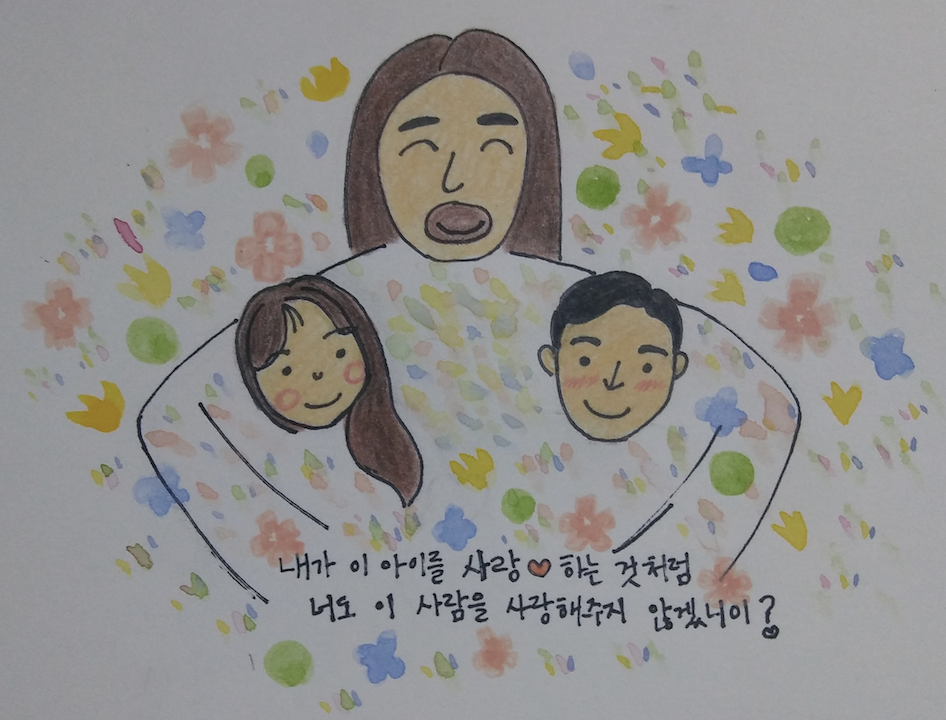 내가 이 아이를 사랑♥하는 것처럼
너도 이 사람을 사랑해주지 않겠니이?